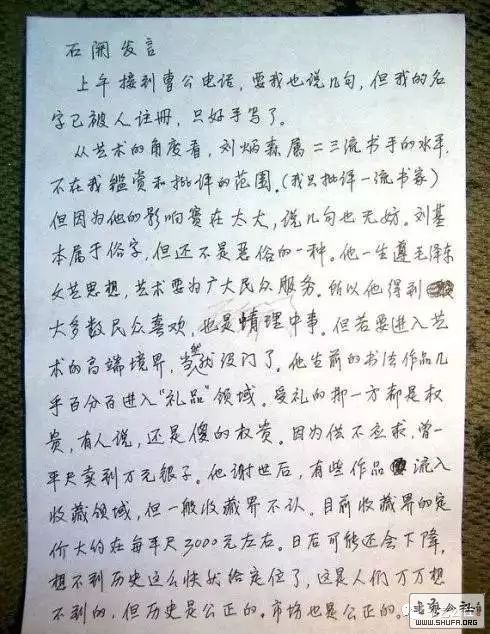 石開发言
上午接到曹公电话,要我也说几句,但我的名
字已被人註冊,只好手写了。
从艺术的角度看,刘炳森属二三流书手的水平,
不在我鑑赏和批评的范围。(我只批评一流书家)
但因为他的影响实在太大,说几句也无妨。刘基
本属于俗字,但还不是恶俗的一种。他一生遵毛泽东
文艺思想,艺术要为广大民众服务。所以他得到
大多数民众喜欢,也是情理中事。但若要进入艺
术的高端境界,当然就没门了。他生前的书法作品几
乎百分百进入“礼品”领域。受礼的那一方都是权
贵,有人说,还是傻的权贵。因为供不应求,曾一
平尺卖到万元银子。他谢世后,有些作品流入
收藏领域,但一般收藏界不认。目前收藏界的定
价大约在每平尺3000元左右。日后可能还会下降,
想不到历史这么快就给定位了,这是人们万万想
不到的,但历史是公正的。市场也是公正的。
WWW.SHUFA.ORG